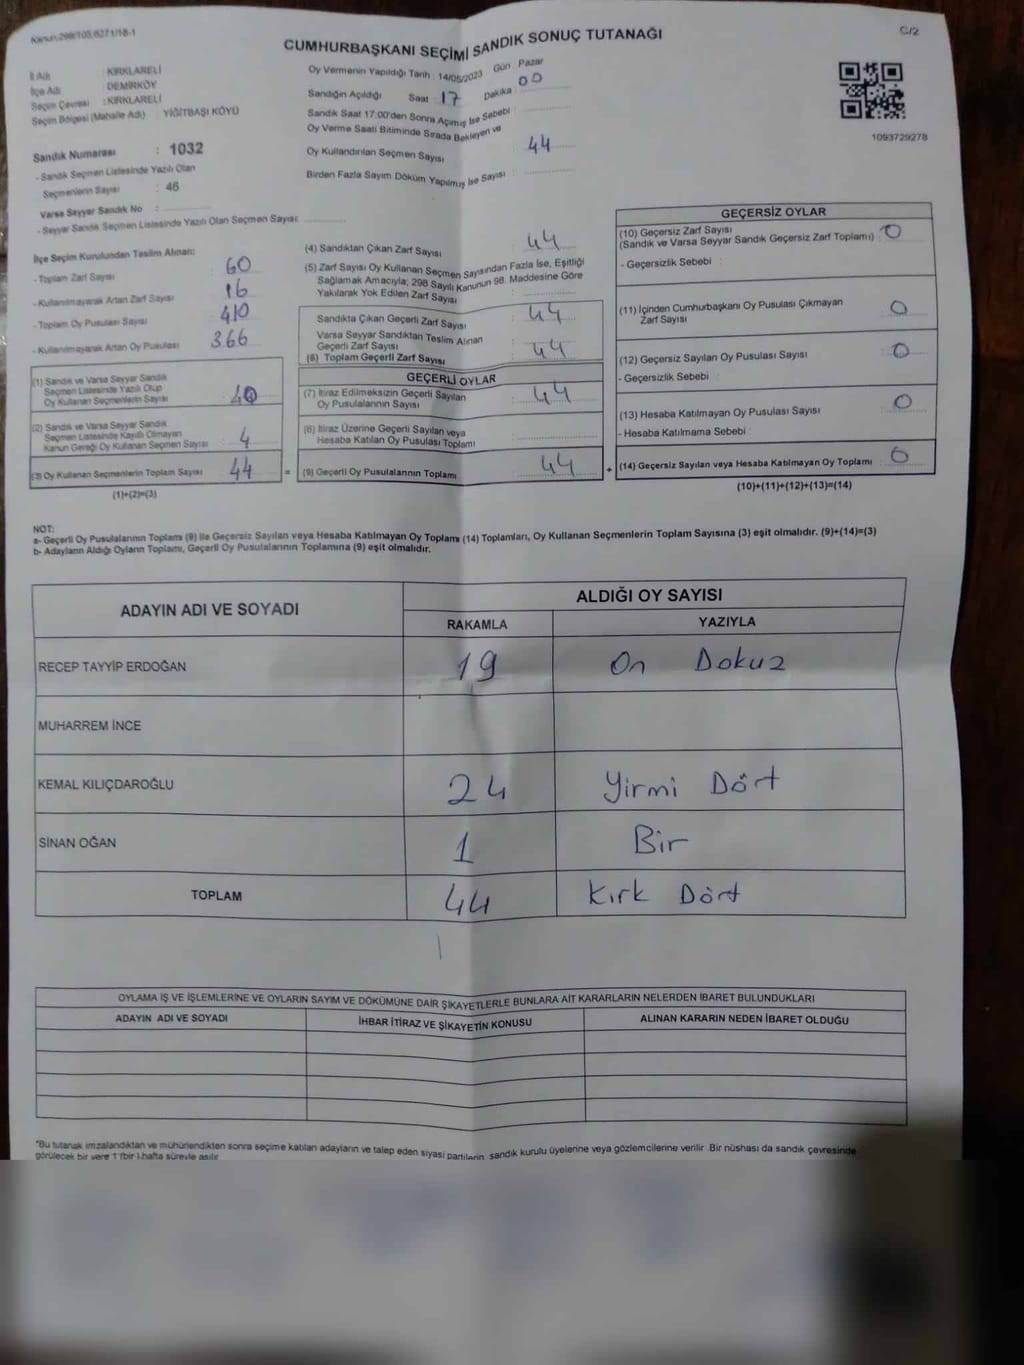 Kanun:298/105,6271/18-1
C/2
CUMHURBAŞKANI SEÇİMİ SANDIK SONUÇ TUTANAĞI
İl Adı : KIRKLARELİ
İlçe Adı : DEMİRKÖY
Seçim Çevresi : KIRKLARELİ
Seçim Bölgesi (Mahalle Adı) : YİĞİTBAŞI KÖYÜ
Sandık Numarası : 1032
- Sandık Seçmen Listesinde Yazılı Olan
Seçmenlerin Sayısı : 46
Varsa Seyyar Sandık No :
- Seyyar Sandık Seçmen Listesinde Yazılı Olan Seçmen Sayısı:
Oy Vermenin Yapıldığı Tarih : 14/05/2023 Gün : Pazar
Sandığın Açıldığı Saat : 17 Dakika : 00
Sandık Saat 17:00'den Sonra Açımış İse Sebebi :
Oy Verme Saati Bitiminde Sırada Bekleyen ve
Oy Kullandırılan Seçmen Sayısı : 44
Birden Fazla Sayım Döküm Yapılmış İse Sayısı :
1093729278
İlçe Seçim Kurulundan Teslim Alınan:
- Toplam Zarf Sayısı : 60
- Kullanılmayarak Artan Zarf Sayısı : 16
- Toplam Oy Pusulası Sayısı : 410
- Kullanılmayarak Artan Oy Pusulası : 366
(1) Sandık ve Varsa Seyyar Sandık
Seçmen Listesinde Yazılı Olup
Oy Kullanan Seçmenlerin Sayısı : 40
(2) Sandık ve Varsa Seyyar Sandık
Seçmen Listesinde Kayıtlı Olmayan
Kanun Gereği Oy Kullanan Seçmen Sayısı : 4
(3) Oy Kullanan Seçmenlerin Toplam Sayısı : 44
(1)+(2)=(3)
(4) Sandıktan Çıkan Zarf Sayısı : 44
(5) Zarf Sayısı Oy Kullanan Seçmen Sayısından Fazla İse, Eşitliği
Sağlamak Amacıyla, 298 Sayılı Kanunun 98. Maddesine Göre
Yakılarak Yok Edilen Zarf Sayısı :
Sandıkta Çıkan Geçerli Zarf Sayısı : 44
Varsa Seyyar Sandıktan Teslim Alınan
Geçerli Zarf Sayısı :
(6) Toplam Geçerli Zarf Sayısı : 44
GEÇERLİ OYLAR
(7) İtiraz Edilmeksizin Geçerli Sayılan
Oy Pusulalarının Sayısı : 44
(8) İtiraz Üzerine Geçerli Sayılan veya
Hesaba Katılan Oy Pusulası Toplamı :
= (9) Geçerli Oy Pusulalarının Toplamı : 44 +
GEÇERSİZ OYLAR
(10) Geçersiz Zarf Sayısı
(Sandık ve Varsa Seyyar Sandık Geçersiz Zarf Toplamı) : 0
- Geçersizlik Sebebi :
(11) İçinden Cumhurbaşkanı Oy Pusulası Çıkmayan
Zarf Sayısı : 0
(12) Geçersiz Sayılan Oy Pusulası Sayısı : 0
- Geçersizlik Sebebi :
(13) Hesaba Katılmayan Oy Pusulası Sayısı : 0
- Hesaba Katılmama Sebebi :
(14) Geçersiz Sayılan veya Hesaba Katılmayan Oy Toplamı : 0
(10)+(11)+(12)+(13)=(14)
NOT:
a- Geçerli Oy Pusulalarının Toplamı (9) ile Geçersiz Sayılan veya Hesaba Katılmayan Oy Toplamı (14) Toplamları, Oy Kullanan Seçmenlerin Toplam Sayısına (3) eşit olmalıdır. (9)+(14)=(3)
b- Adayların Aldığı Oyların Toplamı, Geçerli Oy Pusulalarının Toplamına (9) eşit olmalıdır.
ADAYIN ADI VE SOYADI
ALDIĞI OY SAYISI
RAKAMLA YAZIYLA
RECEP TAYYİP ERDOĞAN 19 On Dokuz
MUHARREM İNCE
KEMAL KILIÇDAROĞLU 24 Yirmi Dört
SİNAN OĞAN 1 Bir
TOPLAM 44 Kırk Dört
OYLAMA İŞ VE İŞLEMLERİNE VE OYLARIN SAYIM VE DÖKÜMÜNE DAİR ŞİKAYETLERLE BUNLARA AİT KARARLARIN NELERDEN İBARET BULUNDUKLARI
ADAYIN ADI VE SOYADI İHBAR İTİRAZ VE ŞİKAYETİN KONUSU ALINAN KARARIN NEDEN İBARET OLDUĞU
"Bu tutanak imzalandıktan ve mühürlendikten sonra seçime katılan adayların ve talep eden siyasi partilerin sandık kurulu üyelerine veya gözlemcilerine verilir. Bir nüshası da sandık çevresinde
görülecek bir yere 1 (bir) hafta süreyle asılır